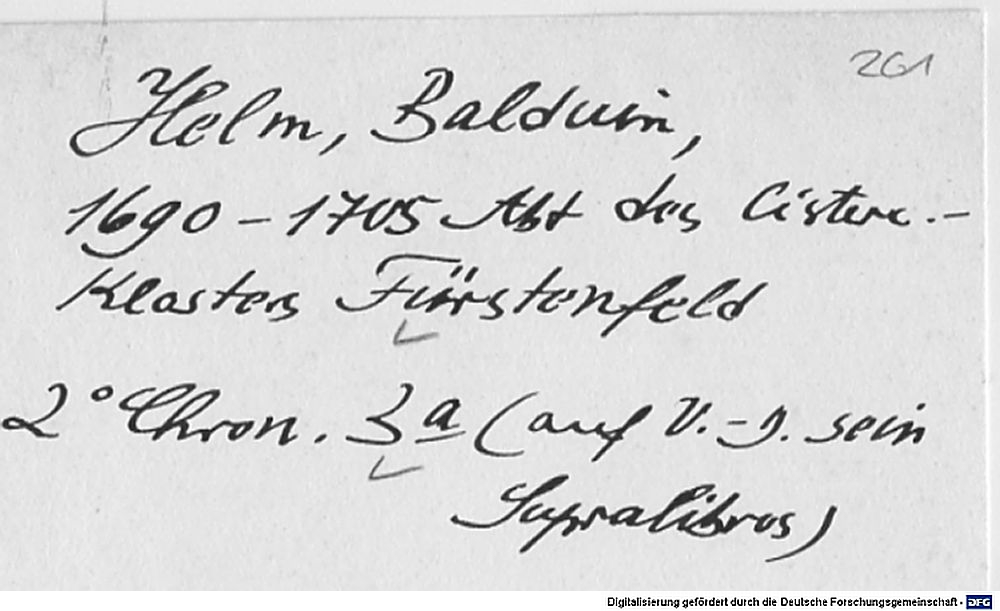 261
Helm, Balduin,
1690 – 1705 Abt des Cisterc.-
Klosters Fürstenfeld
2° Chron. 3a (auf V.-D. sein
Supralibros)
Digitalisierung gefördert durch die Deutsche Forschungsgemeinschaft - DFG